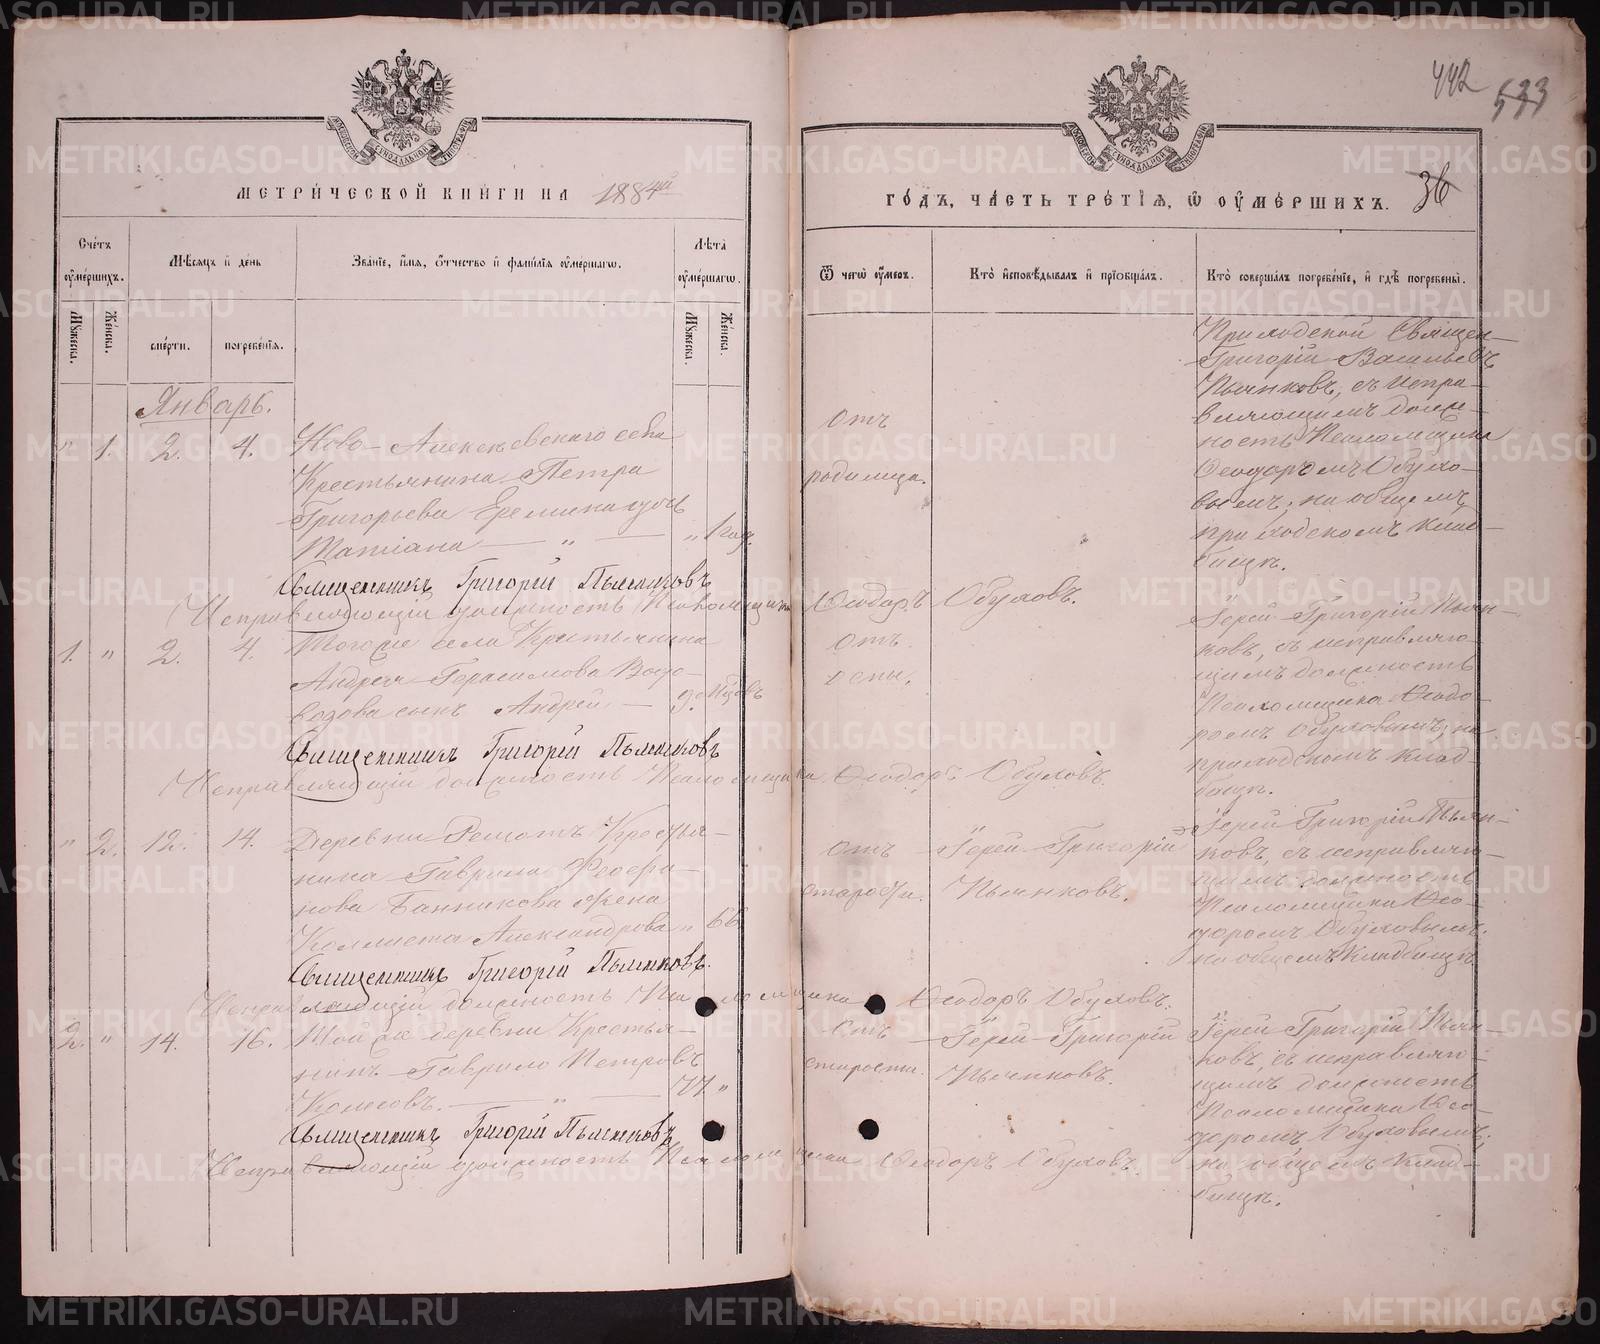 442 533
МЕТРИЧЕСКОЙ КНИГИ НА 1884й
ГОДЪ, ЧАСТЬ ТРЕТІЯ, Ѿ ОУМЕРШИХЪ. 36
Счетъ оумершихъ.
Мѣсяцъ и день
Званіе, имя, отчество и фамилія оумершагѡ.
Лѣта оумершагѡ.
Ѿ чегѡ оумеръ.
Кто исповѣдывалъ и пріобщалъ.
Кто совершалъ погребеніе, и гдѣ погребены.
Мужеска.
Женска.
смерти.
погребенія.
Мужеска.
Женска.
Январь.
" 1. 2. 4.
Ново-Алексѣевскаго села
Крестьянина Петра
Григорьева Еремина дочь
Татіана — " — " 1 год.
отъ
родимца.
Приходской Священ-
Григорій Васильевъ
Пьянковъ, съ исправ-
вляющимъ долж-
ность Псаломщика
Ѳеодоромъ Обухо-
вымъ, на общемъ
приходскомъ клад-
бищѣ.
Священникъ Григорій Пьянковъ
Исправляющій должность Псаломщика Ѳеодоръ Обуховъ.
1. " 2. 4.
Тогоже села Крестьянина
Андрея Герасимова Водо-
возова сынъ Андрей —
отъ
оспы.
Іерей Григорій Пьян-
ковъ, съ исправляю-
щимъ должность
Псаломщика Ѳеодо-
ромъ Обуховымъ, на
приходскомъ клад-
бищѣ.
Священникъ Григорій Пьянковъ
Исправляющій должность Псаломщика Ѳеодоръ Обуховъ.
" 2. 12. 14.
Деревни Решотъ Крестья-
нина Гаврила Феофи-
нова Банникова жена
Александрова " 66
отъ
старости.
Іерей Григорій
Пьянковъ.
Іерей Григорій Пьян-
ковъ, съ исправляю-
щимъ должность
Псаломщика Ѳео-
доромъ Обуховымъ.
на общемъ кладбищѣ.
Священникъ Григорій Пьянковъ.
Исправляющій должность Псаломщика Ѳеодоръ Обуховъ.
2. " 14. 16.
Той же деревни Крестья-
нинъ Гаврило Петровъ
Колесовъ. — " — 77. "
Отъ
старости.
Іерей Григорій
Пьянковъ.
Іерей Григорій Пьян-
ковъ, съ исправляю-
щимъ должность
Псаломщика Ѳео-
доромъ Обуховымъ,
на общемъ клад-
бищѣ.
Священникъ Григорій Пьянковъ
Исправляющій должность Псаломщика Ѳеодоръ Обуховъ.
METRIKI.GASO-URAL.RU